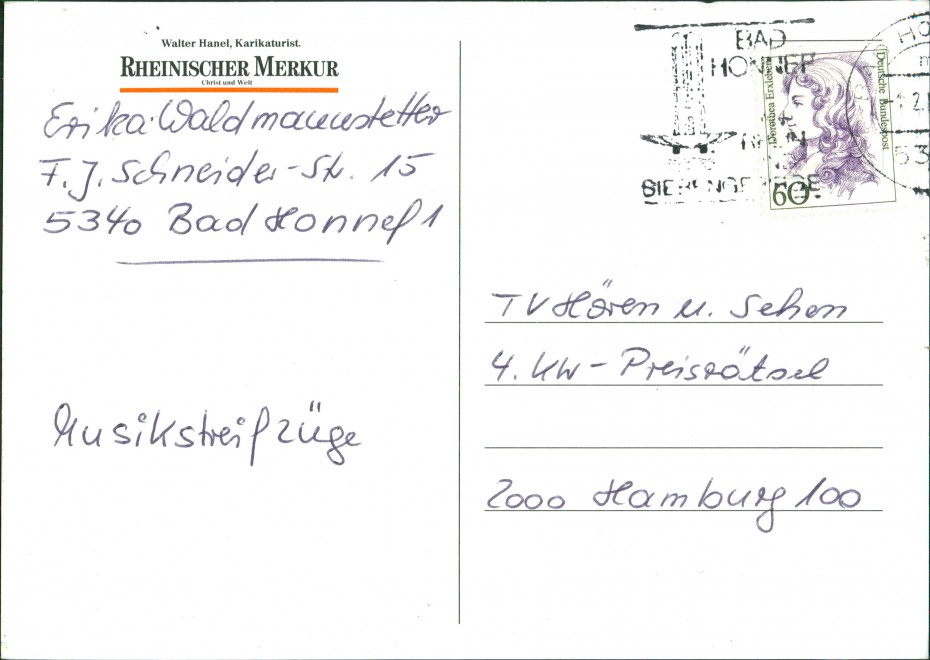 Walter Hanel, Karikaturist.
RHEINISCHER MERKUR
Christ und Welt
Erika Waldmannstetter
F. J. Schneider-Str. 15
5340 Bad Honnef 1
Musikstreifzüge
BAD
HONNEF
Dorothea Erxleben
Deutsche Bundespost
60
TV Hören u. Sehen
4. KW - Preisrätsel
2000 Hamburg 100